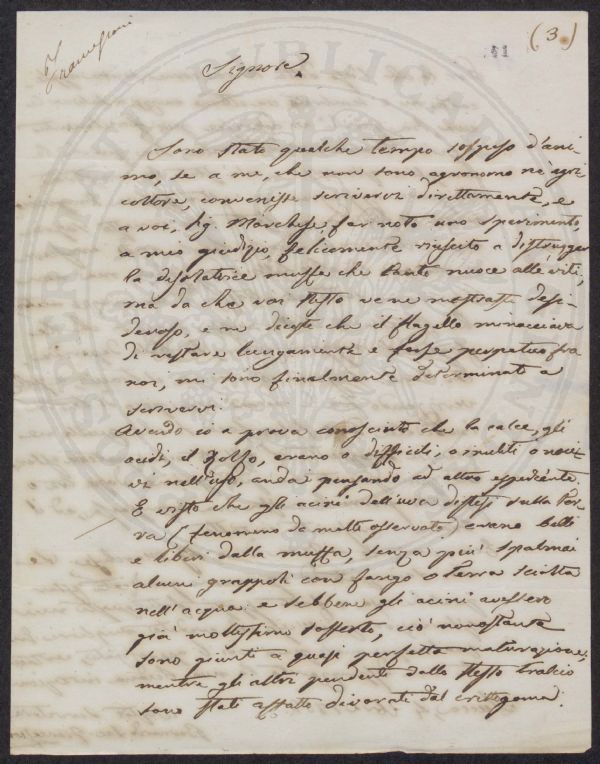 (3.)
Signore
Sono stato qualche tempo sospeso d'ani-
mo, se a me, che non sono, agronomo nè agri-
coltore, convenisse scrivervi direttamente, e
a voi, Sig. Marchese, far noto uno sperimento,
a mio giudizio, felicemente riuscito a distrugger
la desolatrice muffa che tanto nuoce alle viti,
ma da che voi stesso vene mostraste desi-
deroso, e ne diceste che il flagello minacciava
di restare lungamente e forse perpetuo fra
noi, mi sono finalmente determinato a
scrivervi.
Avendo io a prova conosciuto che la calce, gli
acidi, il zolfo, erano o difficili, o inutili o noci-
vi nell'uso, andai pensando ad altro espediente.
E visto che gli acini dell'uva distesi sulla ter-
ra (fenomeno da molti osservato) erano belli
e liberi dalla muffa, senza più spalmai
alcuni grappoli con fango o terra sciolta
nell'acqua: e sebbene gli acini avessero
già moltissimo sofferto, ciò nonostante
sono giunti a quasi perfetta maturazione;
mentre gli altri pendenti dallo stesso tralcio
sono stati affatto divorati dal crittogama.